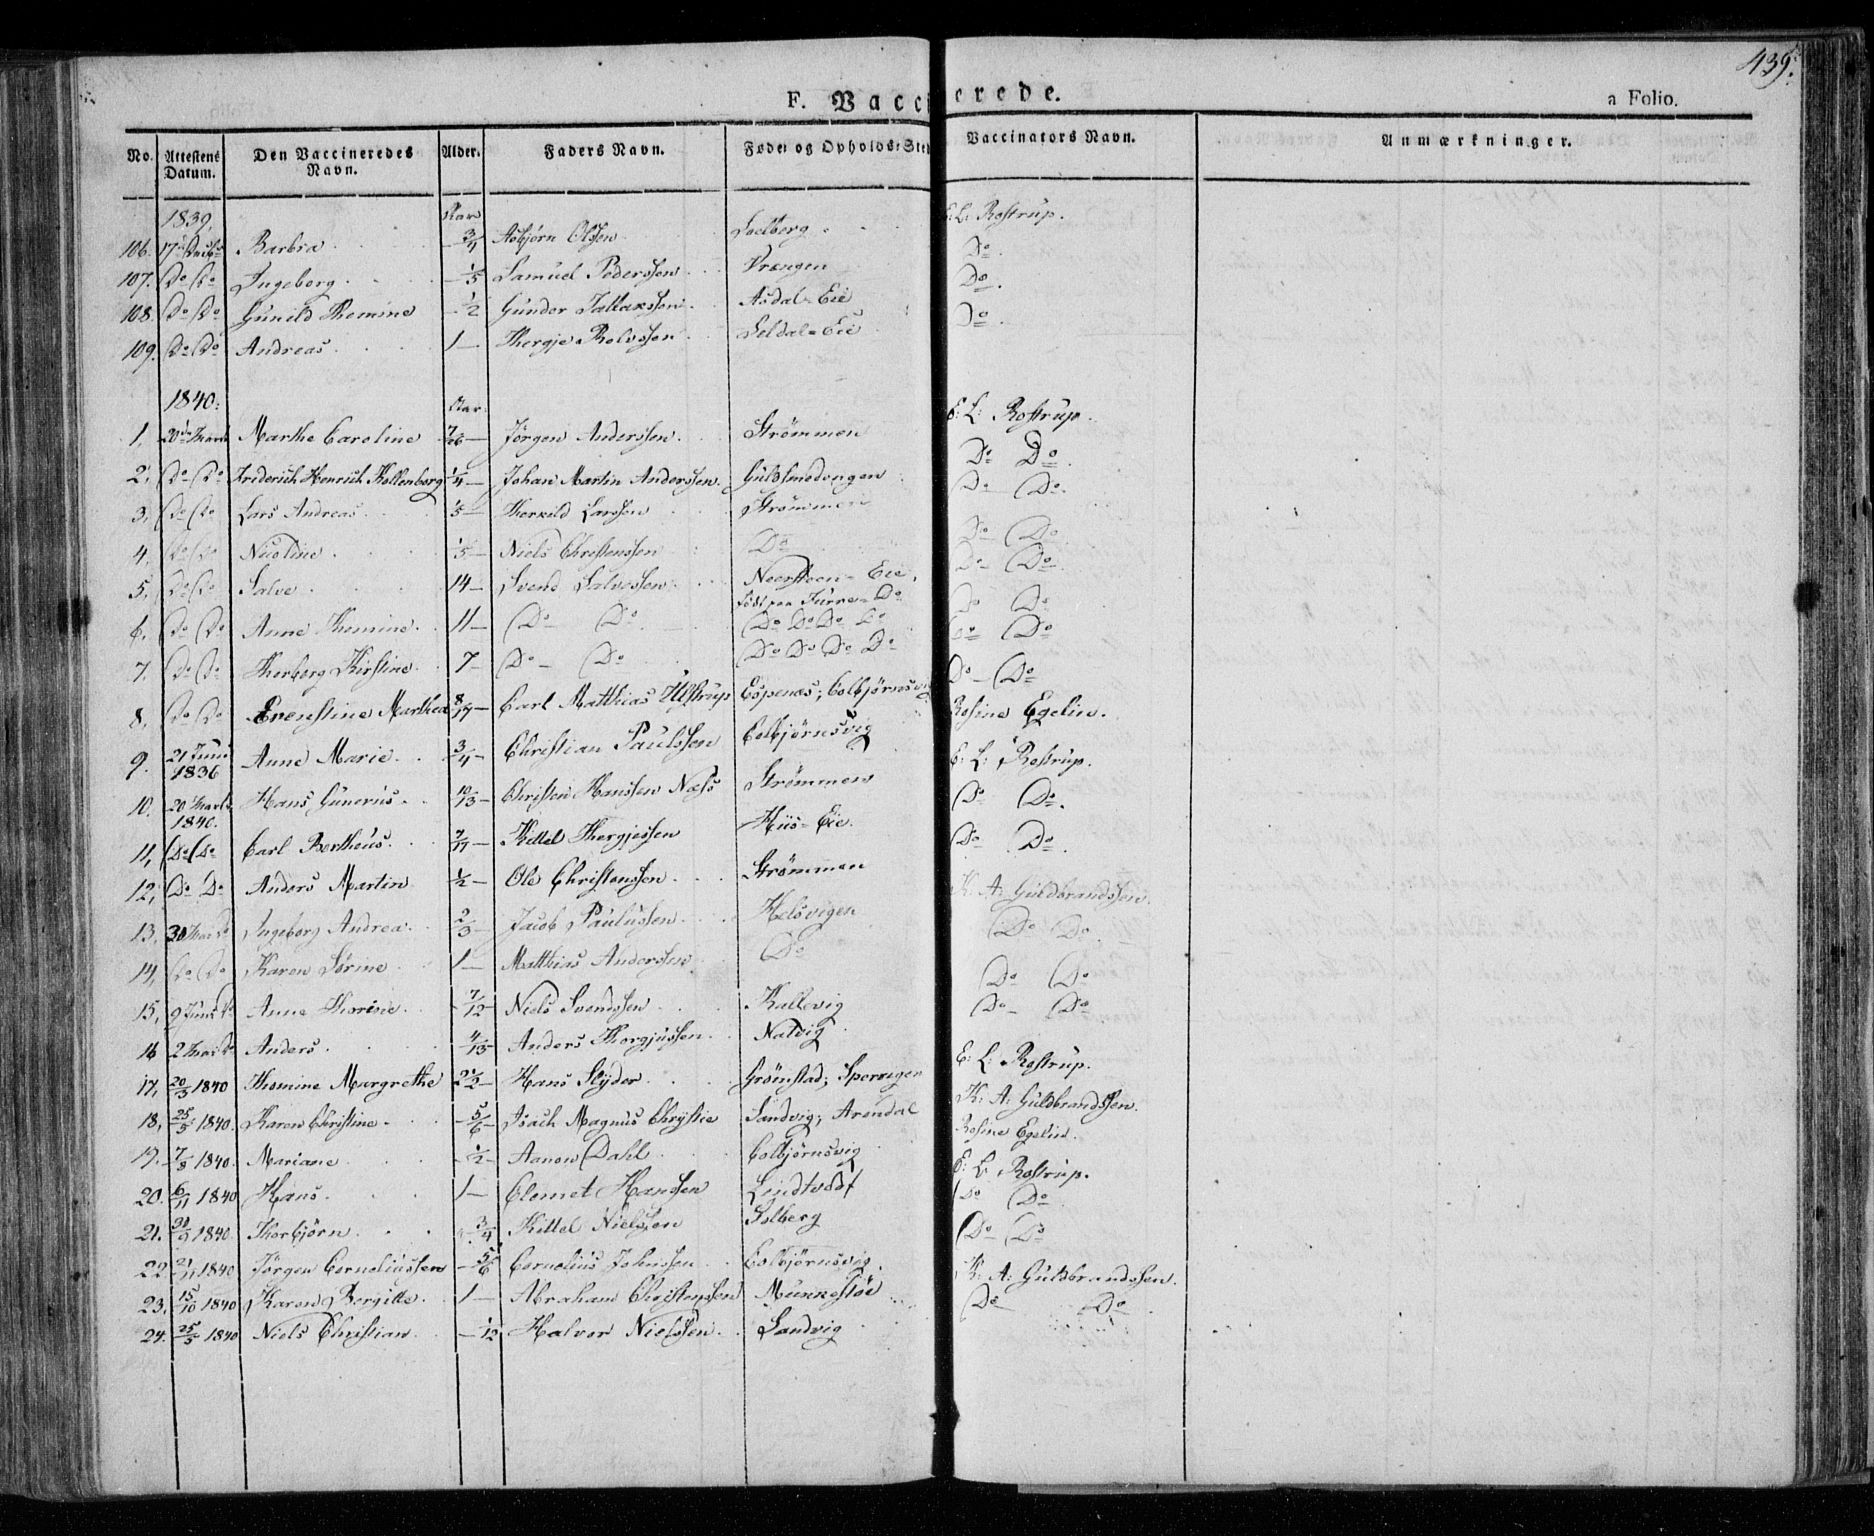 439.
F. Vaccinerede.
a Folio.
No. Attestens Datum. Den Vaccineredes Navn. Alder. Faders Navn. Føde: og Opholds: Sted Vaccinators Navn. Anmærkninger.
1839, Aar E: L: Rostrup.
106. 17de Barbra 3/4 Asbjørn Olssen Soelberg Do
107. Do Do Ingeborg 1/5 Samuel Pederssen Vrengen Do
108. Do Do Gunild Thomine 1/2 Gunder Tallaxssen Asdal-Eie Do
109. Do Do Andreas 1 Thergje Rolvssen Seldal-Eie
1840: Aar
1, 20de Marts Marthe Caroline 7/26 Jørgen Anderssen Strømmen E: L: Rostrup.
2, Do Do Friderich Henrich Kollenborg 1/4 Johan Martin Anderssen Guldsmedvngen Do Do
3, Do Do Lars Andreas 1/5 Therkild Larssen Strømmen Do Do
4, Do Do Nicoline 1/5 Niels Christenssen Do Do Do
5, Do Do Salve 14 Svend Salvessen Neersteen-Eie, Do Do
født paa Furre-Do
6, Do Do Anne Thomine 11 Do Do Do Do Do Do Do Do
7, Do Do Therberg Kirstine 7 Do Do Do Do Do Do Do Do
8, Do Do Erenstine Marthea 8/17 Carl Matthias Ulstrup Espenæs; Colbjørnsvig Rosine Egelin.
9. 21 Juni 1836 Anne Marie 3/4 Christian Paulssen Colbjørnsvig E: L: Rostrup.
10. 20 Marts 1840. Hans Gunerius 10/13 Christen Hanssen Næss Strømmen Do Do
11, Do Do Carl Bertheus 7/11 Kittel Thergjessen Hiis-Eie. Do Do
12, Do Do Anders Martin 1/2 Ole Christenssen Strømmen K: A: Guldbrandssen.
13, 30 Mai Do Ingeborg Andrea 2/3 Jacob Paulussen Kelsvigen Do Do
14, Do Do Karen Sørine 1 Matthias Anderssen Do Do Do
15, 9 Juni Do Anne Thorine 7/12 Niels Svendssen Kallevig Do Do
16 2 Mai Do Anders 4/13 Anders Thorgjussen Natvig E: L: Rostrup.
17, 20/3 1840 Thomine Margrethe 2 1/2 Hans Slyder Grømstad; Spervigen K: A: Guldbrandssen.
18, 25/5 1840. Karen Christine 5/6 Isach Magnus Chrystie Sandvig; Arendal Rosine Egelin.
19. 7/8 1840. Mariane 1/2 Aanon Dahl Colbjørnsvig E: L: Rostrup.
20. 6/11 1840 Hans 1 Clemet Hanssen Lindtvedt Do Do
21. 30/9 1840 Thorbjørn 3/4 Kittel Nielssen Solberg Do Do
22. 21/11 1840 Jørgen Corneliussen 5/6 Cornelius Johnssen Colbjørnsvig. K: A: Guldbrandssen.
23. 15/10 1840 Karen Bergitte 1 Abraham Christenssen Munkestøe Do Do
24. 25/5 1840 Niels Christian 1/12 Halvor Nielssen Sandvig